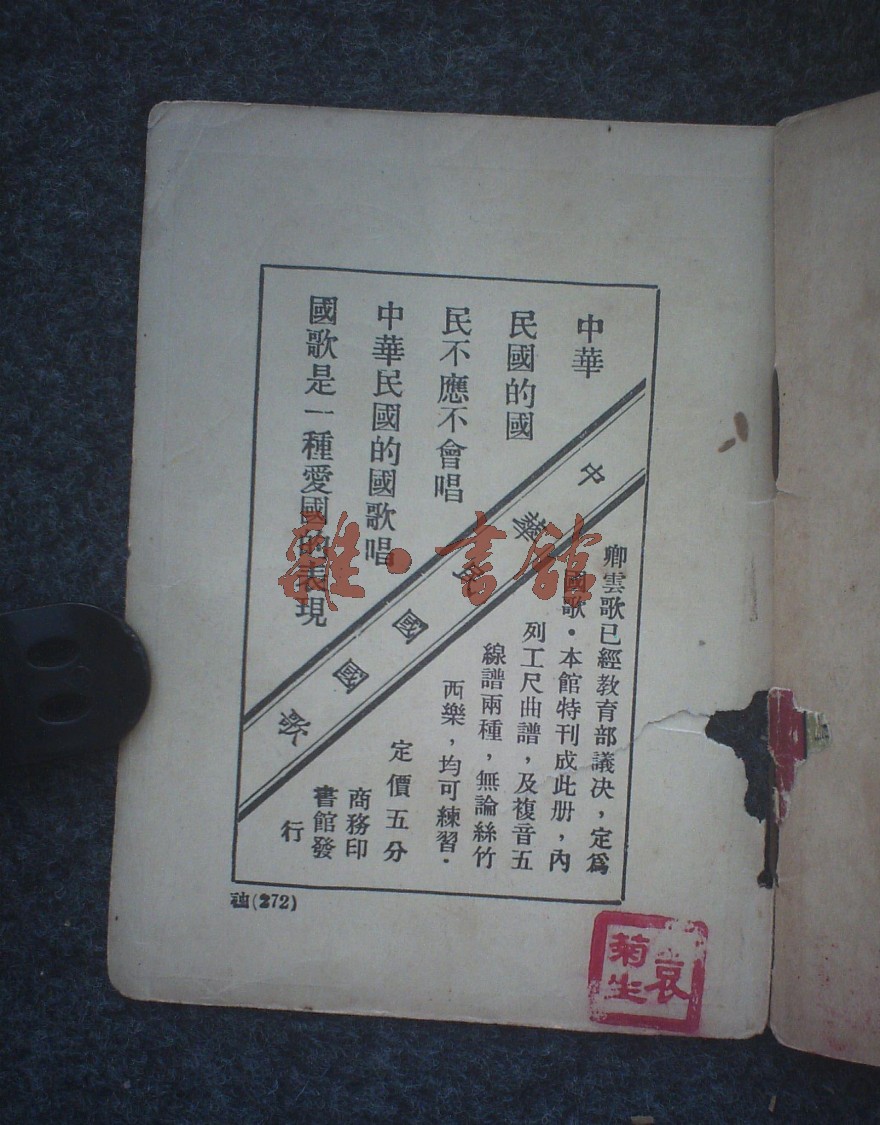 中華
民國的國
民不應不會唱
中華民國的國歌唱
國歌是一種愛國的表現
中華民國國歌
卿雲歌已經教育部議决，定爲
國歌．本館特刊成此册，內
列工尺曲譜，及複音五
線譜兩種，無論絲竹
西樂，均可練習．
定價五分
商務印
書館發
行
(272)
雜·書館
菊生